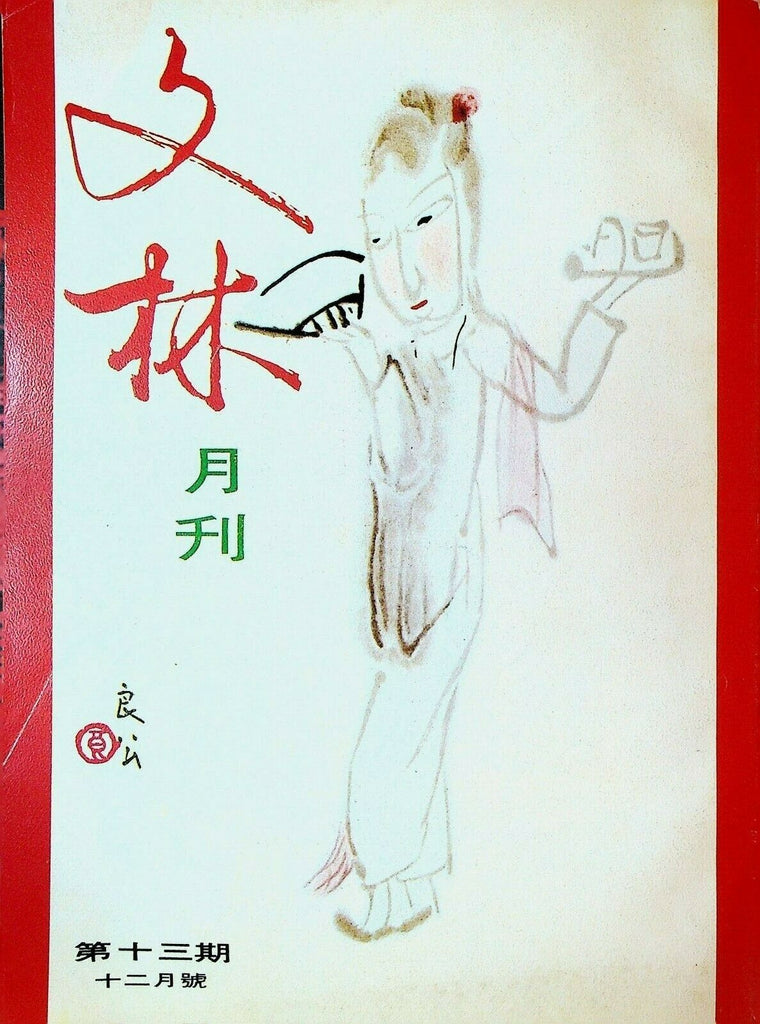 文
林
月
刊
良
公
第十三期
十二月號